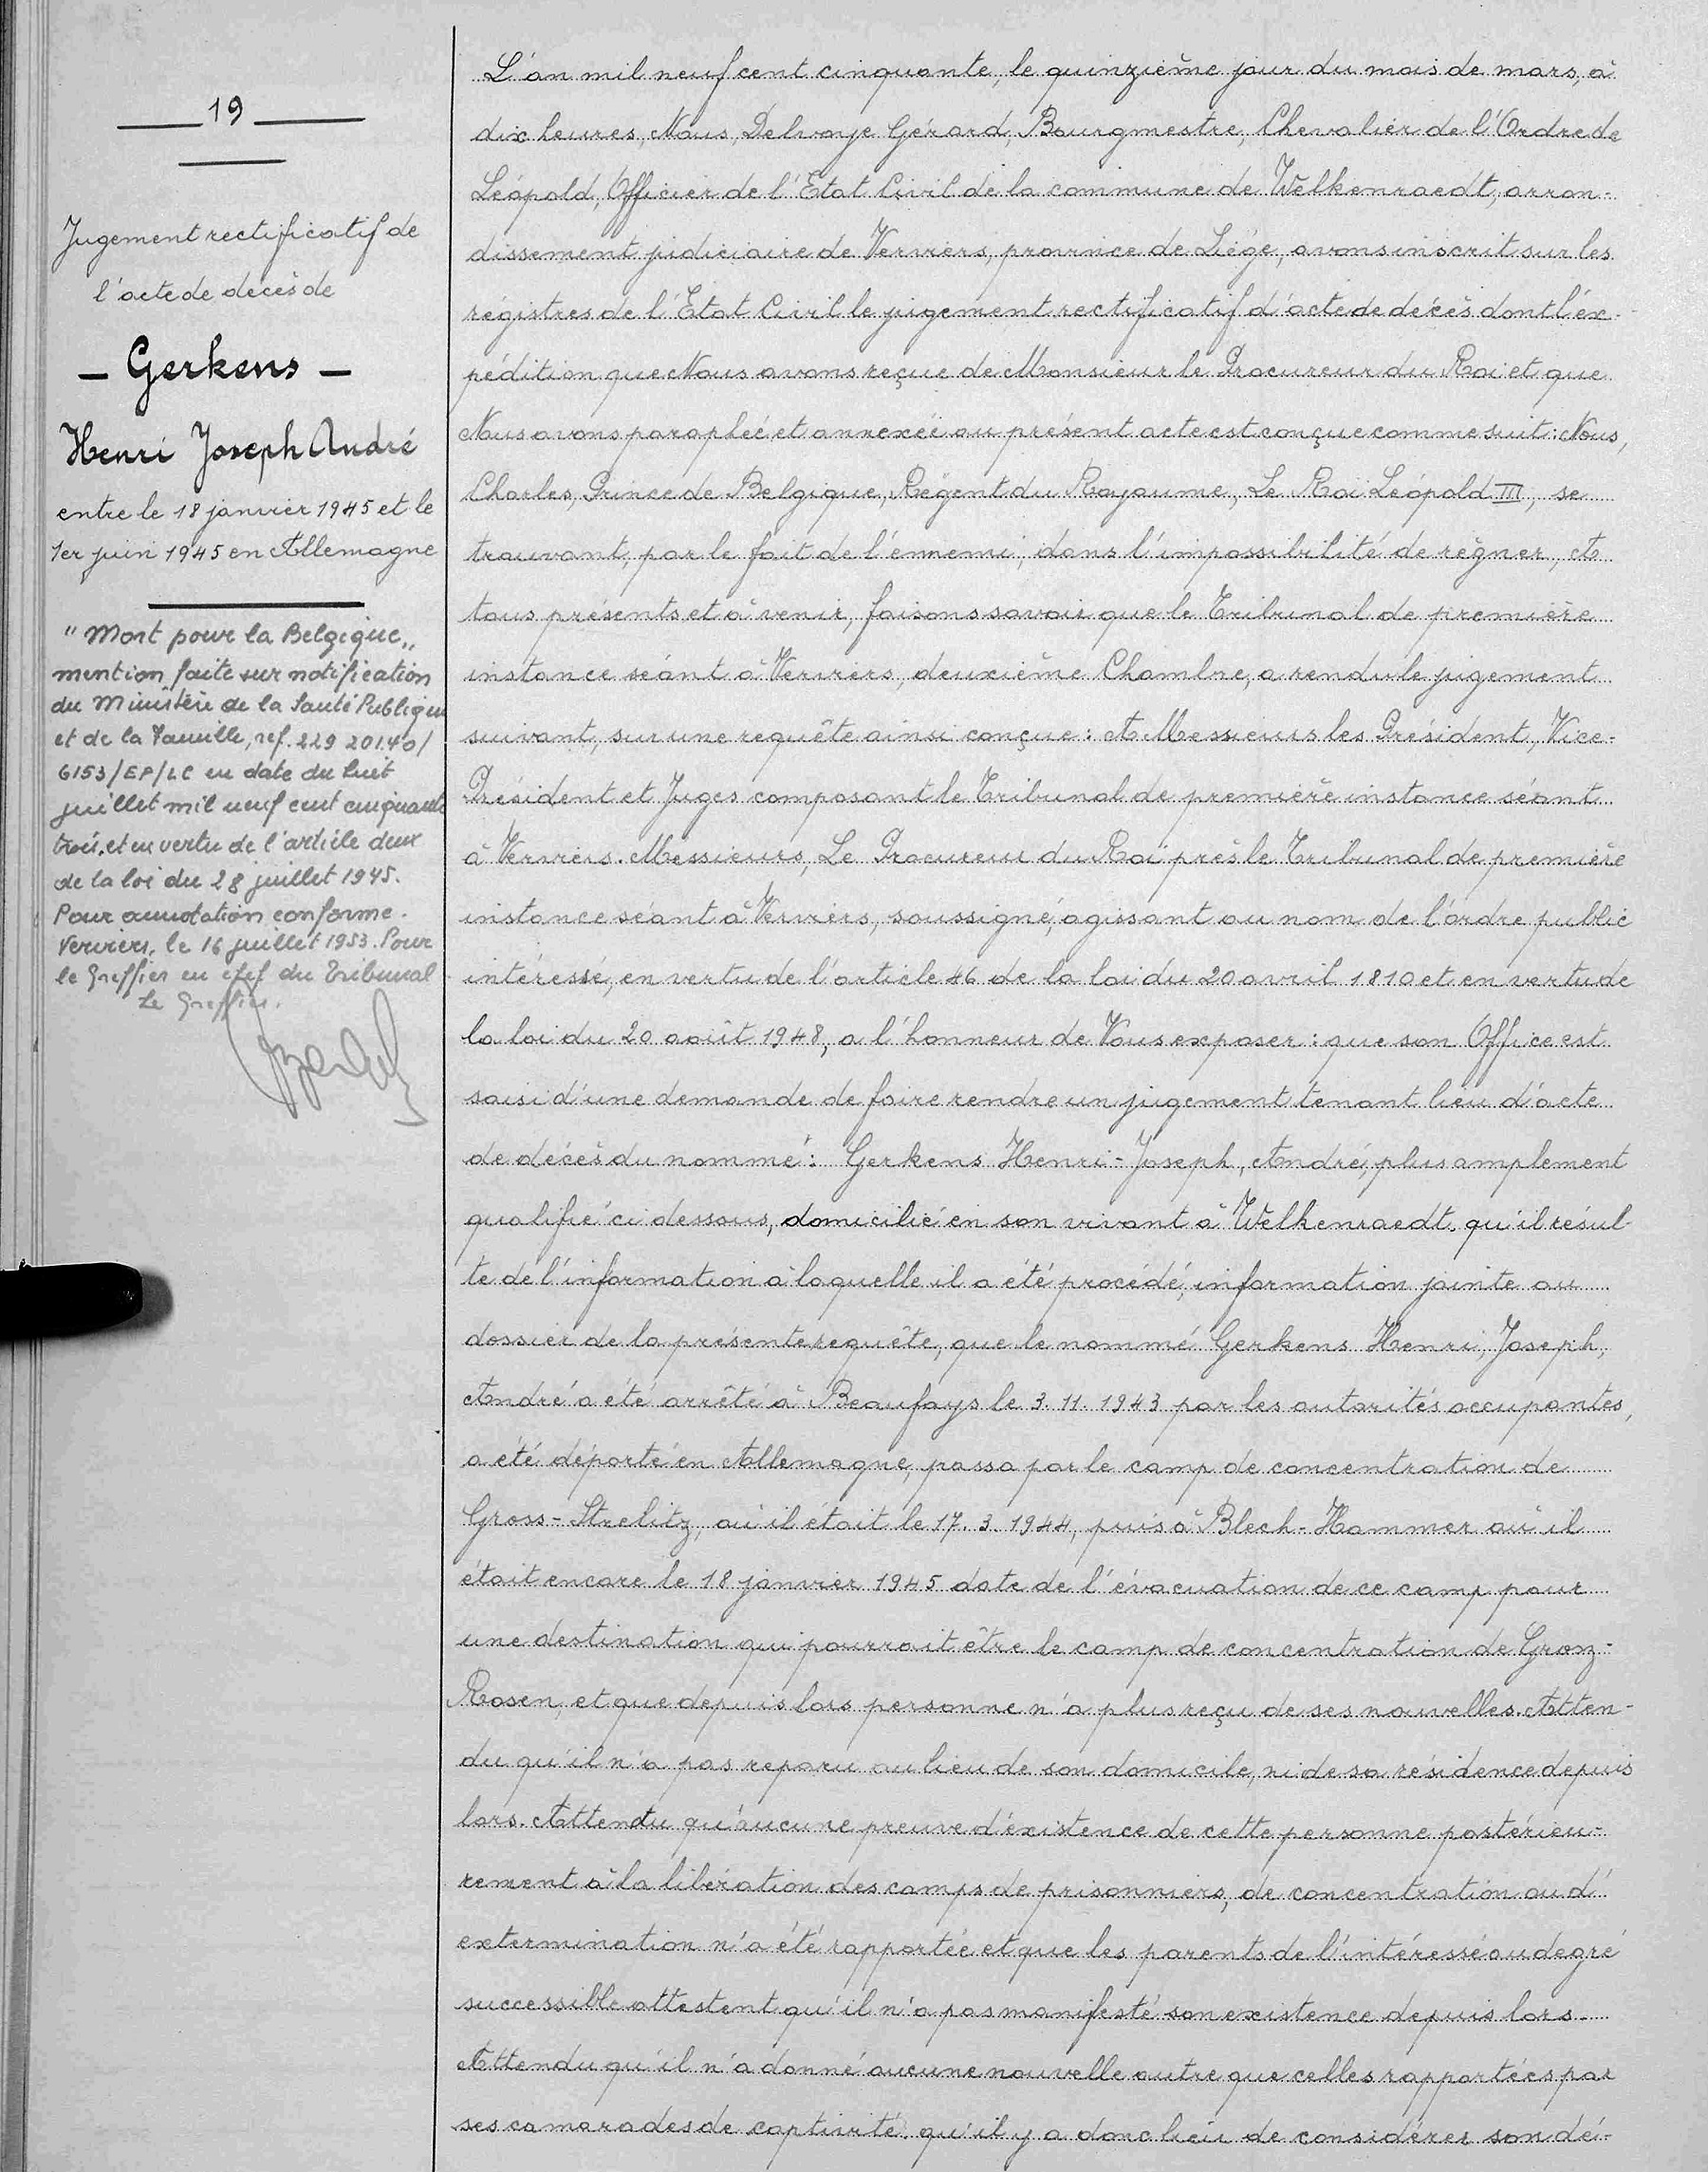 19
Jugement rectificatif de
l'acte de décès de
- Gerkens -
Henri Joseph André
entre le 18 janvier 1945 et le
1er juin 1945 en Allemagne
"Mort pour la Belgique"
mention faite sur notification
du Ministère de la Santé Publique
et de la Famille, réf. 229 201.40/
6153/EP/LC en date du huit
juillet mil neuf cent cinquante
trois, et en vertu de l'article deux
de la loi du 28 juillet 1945.
Pour annotation conforme.
Verviers, le 16 juillet 1953. Pour
le Greffier en chef du Tribunal
Le Greffier.
L'an mil neuf cent cinquante, le quinzième jour du mois de mars, à
dix heures, Nous, Delvoye Gérard, Bourgmestre, Chevalier de l'Ordre de
Léopold, Officier de l'Etat Civil de la commune de Welkenraedt, arron-
dissement judiciaire de Verviers, province de Liège, avons inscrit sur les
régistres de l'Etat Civil le jugement rectificatif d'acte de décès dont l'ex-
pédition que Nous avons reçue de Monsieur le Procureur du Roi et que
Nous avons paraphée et annexée au présent acte est conçue comme suit: Nous,
Charles, Prince de Belgique, Régent du Royaume, Le Roi Léopold III, se
trouvant, par le fait de l'ennemi, dans l'impossibilité de règner, A
tous présents et à venir, faisons savoir que le Tribunal de première
instance séant à Verviers, deuxième Chambre, a rendu le jugement
suivant, sur une requête ainsi conçue: A Messieurs les Président, Vice-
Président et Juges composant le Tribunal de première instance séant
à Verviers. Messieurs, Le Procureur du Roi près le Tribunal de première
instance séant à Verviers, soussigné, agissant au nom de l'ordre public
intéressé, en vertu de l'article 46 de la loi du 20 avril 1810 et en vertu de
la loi du 20 août 1948, a l'honneur de Vous exposer: que son Office est
saisi d'une demande de faire rendre un jugement tenant lieu d'acte
de décès du nommé: Gerkens Henri-Joseph, André, plus amplement
qualifié ci dessous, domicilié en son vivant à Welkenraedt. qu'il résul-
te de l'information à laquelle il a été procédé, information jointe au
dossier de la présente requête, que le nommé Gerkens Henri, Joseph,
André a été arrêté à Beaufays le 3.11.1943 par les autorités occupantes,
a été déporté en Allemagne, passa par le camp de concentration de
Gross-Strelitz, où il était le 17.3.1944, puis à Blech-Hammer où il
était encore le 18 janvier 1945 date de l'évacuation de ce camp pour
une destination qui pourrait être le camp de concentration de Groz-
Rosen, et que depuis lors personne n'a plus reçu de ses nouvelles. Atten-
du qu'il n'a pas reparu au lieu de son domicile, ni de sa résidence depuis
lors. Attendu qu'aucune preuve d'existence de cette personne postérieu-
rement à la libération des camps de prisonniers, de concentration ou d'
extermination n'a été rapportée et que les parents de l'intéressé au degré
successible attestent qu'il n'a pas manifesté son existence depuis lors.
Attendu qu'il n'a donné aucune nouvelle autre que celles rapportées par
ses camarades de captivité. qu'il y a donc lieu de considérer son dé-